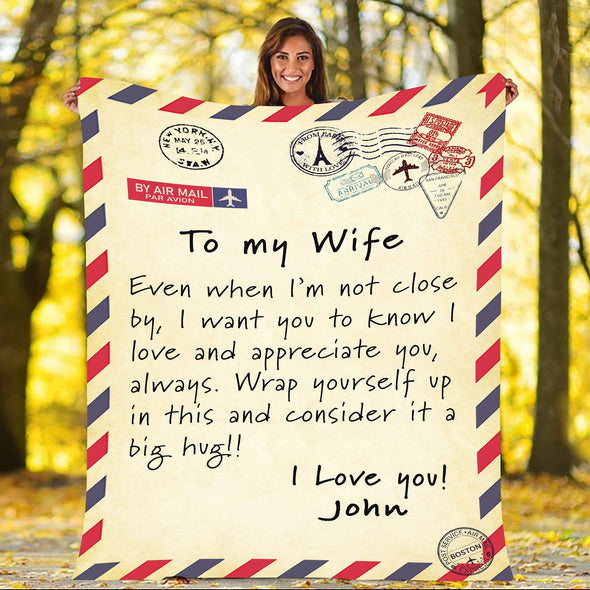 NEW YORK, N.Y.
MAY 25
FROM PARIS
WITH LOVE
ARRIVAL
AIR MAIL
SAN FRANCISCO
BY AIR MAIL
PAR AVION
To my Wife
Even when I'm not close
by, I want you to know I
love and appreciate you,
always. Wrap yourself up
in this and consider it a
big hug!!
I Love you!
John
POST SERVICE • AIR MAIL
BOSTON